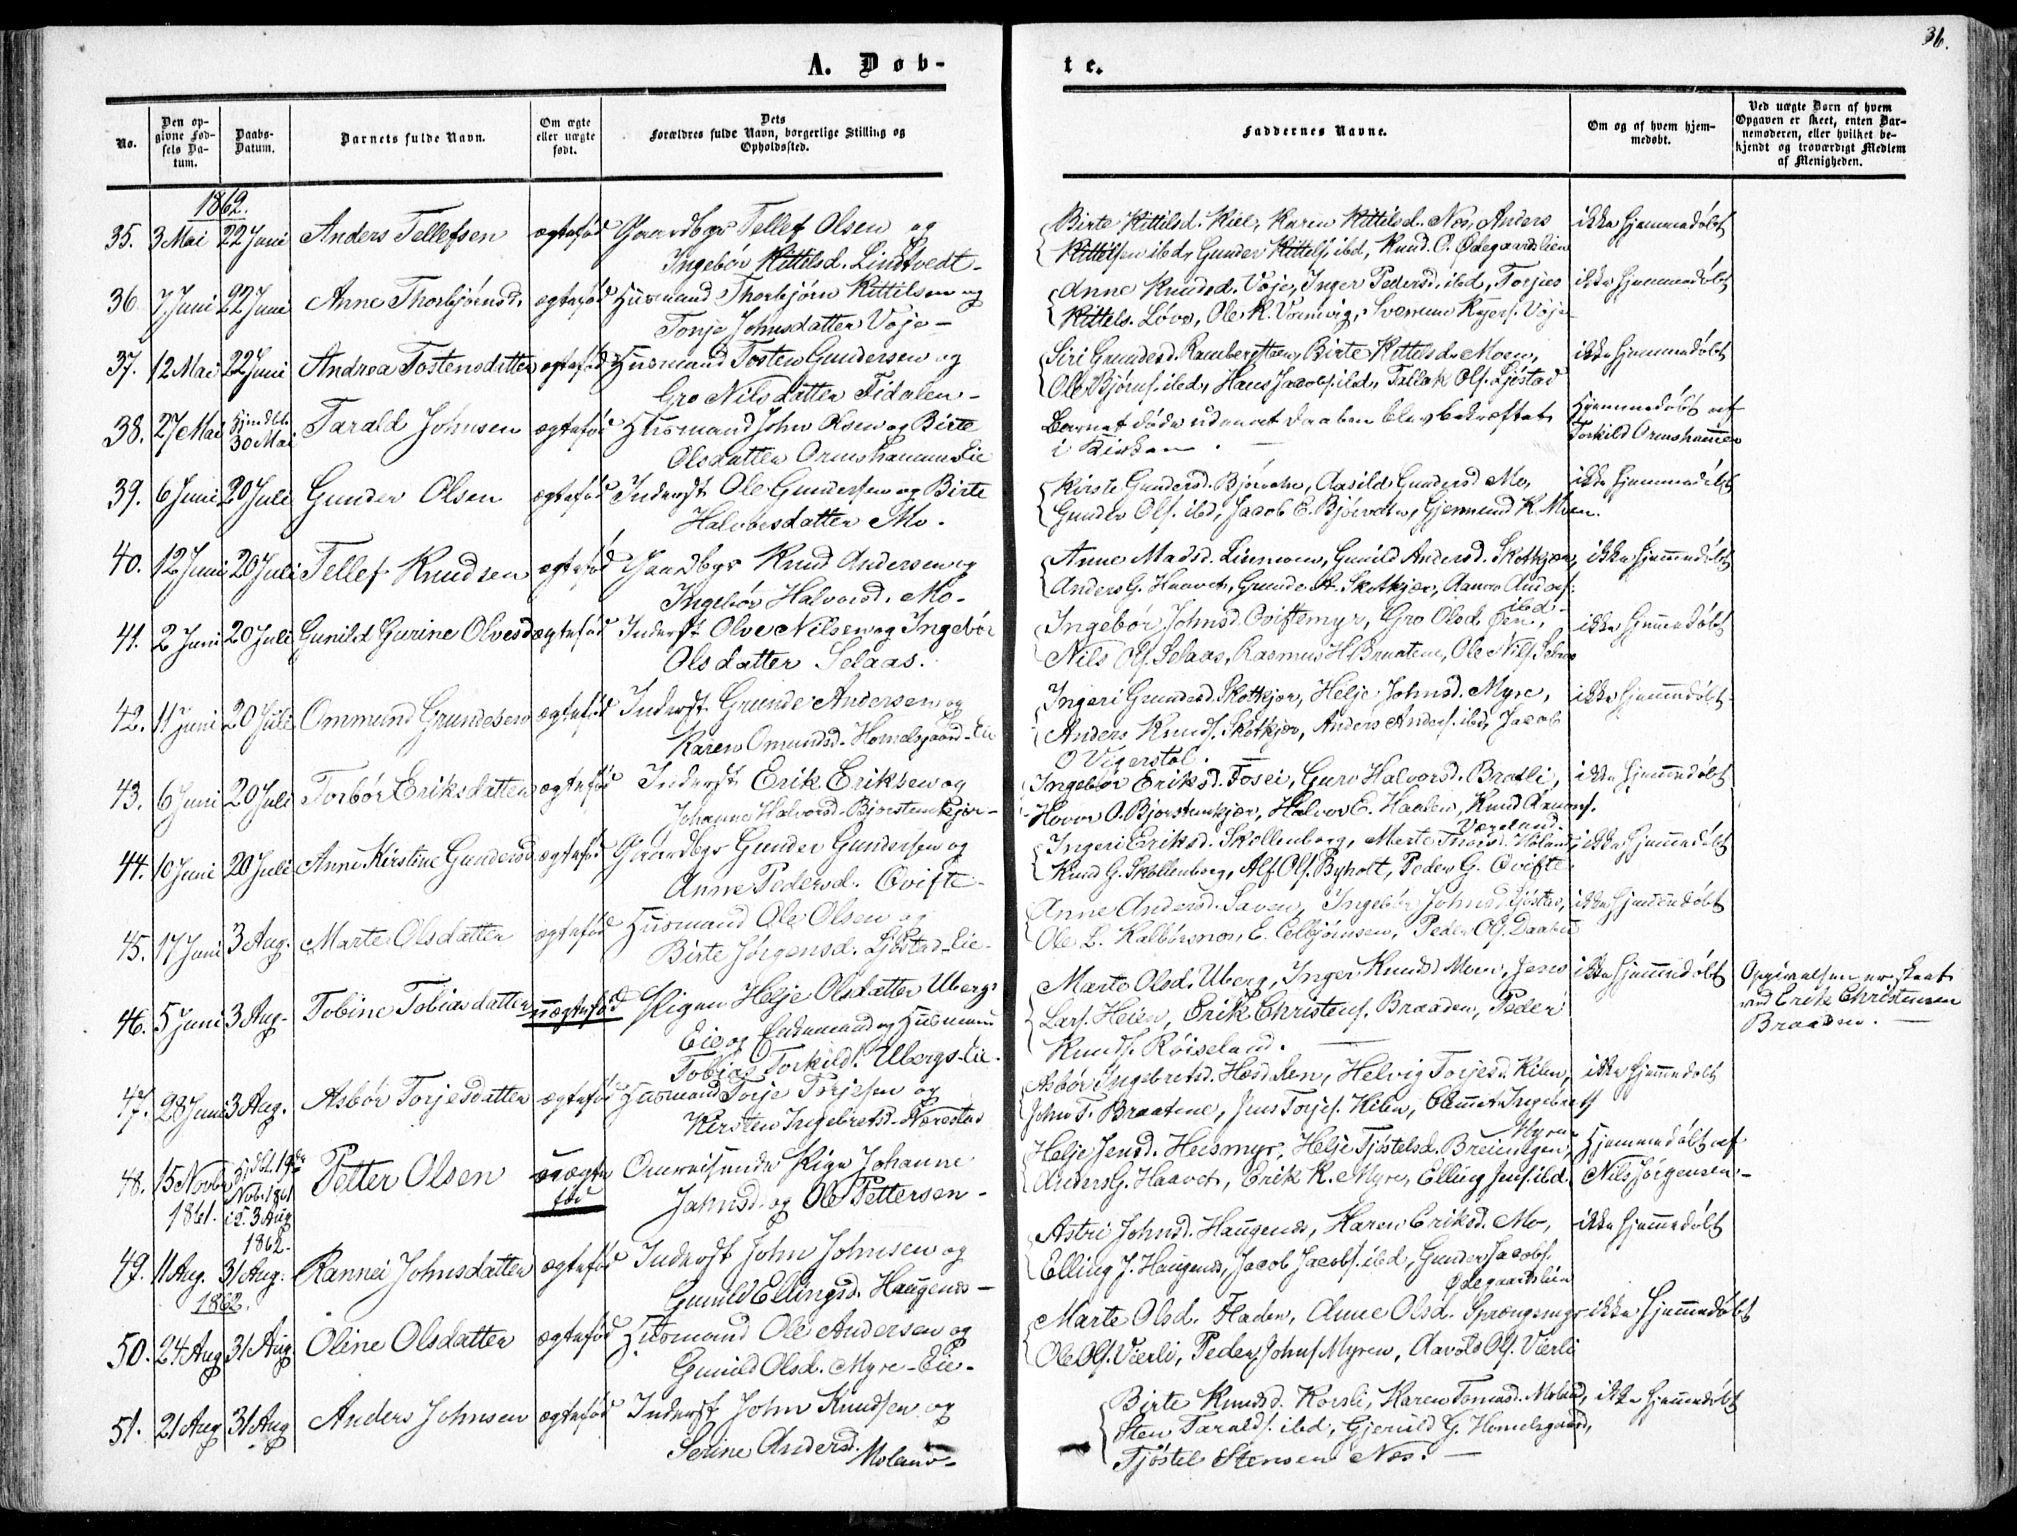 36.
A. Døb-
te.
No.
Den opgivne Fødsels Datum.
Daabs-Datum.
Barnets fulde Navn.
Om ægte eller uægte født.
Dets Forældres fulde Navn, borgerlige Stilling og Opholdssted.
Faddernes Navne.
Om og af hvem hjemmedøbt.
Ved uægte Børn af hvem Opgaven er skeet, enten Barnemoderen, eller hvilket bekjendt og troværdigt Medlem af Menigheden.
1862.
35. 3 Mai 22 Juni Anders Tellefsen ægtefød Gaardbgr Tellef Olsen og
Ingebør Kittilsd. Lindtvedt-
Birte Kittilsd. Kiel, Karen Kittilsd. Næs, Anders
Kittilsen ibd, Gunder Kittels. ibd, Knud O. Ødegaardslien
ikke hjemmedøbt
36. 7 Juni 22 Juni Anne Thorbjørnsd. ægtefød Husmand Thorbjørn Kittilsen og
Tonje Johnsdatter Voje-
Anne Knudsd. Voje, Inger Pedersd. ibd, Torjus
Kittels. Løvs, Ole K. Voje
ikke hjemmedøbt
37. 12 Mai 22 Juni Andrea Tostensdatter ægtefød Husmand Tosten Gundersen og
Gro Nilsdatter Fidalen-
Siri Gundersd. Birte Kittelsd. Moen,
Ole Bjørns. ibd, Hans Jacobs. ibd, Tallak Ols. Ljøstad
ikke hjemmedøbt
38. 27 Mai Hjmdbt 30 Mai Tarald Johnsen ægtefød Husmand John Olsen og Birte
Olsdatter Ormshammer Eie
Barnet døde uden at Daaben blev bekræftet
i Kirken.
Hjemmedøbt af
Torkild Ormshammer
39. 6 Juni 20 Juli Gunder Olsen ægtefød Inderst Ole Gundersen og Birte
Halvorsdatter Mo.
Kirste Gundersd. Aasild Gundersd. Mo,
Gunder Ols. ibd, Jacob E. Gjermund K. Moen.
ikke hjemmedøbt
40. 12 Juni 20 Juli Tellef Knudsen ægtefød Gaardbgr Knud Andersen og
Ingebør Halvorsd. Mo-
Anne Madsd. Linmoen, Gunild Andersd. Skotkjær,
Anders G. Haavet, Grunde A. Skotkjær, Aanon Anders.
ibd-
ikke hjemmedøbt
41. 2 Juni 20 Juli Gunild Gurine Olvesd ægtefød Inderst Olve Nilsen og Ingebør
Olsdatter Selaas.
Ingebør Johnsd. Oviftemyr, Gro Olsd. Øen,
Nils Ols. Selaas, Rasmus H. Braatene, Ole Nils. Selaas
ikke hjemmedøbt
42. 11 Juni 20 Juli Ommund Grundesen ægtefød Inderst Grunde Andersen og
Karen Omundsd. Homelsgaard-Eie
Ingeri Grundesd. Skotkjær, Helje Johnsd. Myre,
Anders Knuds. Skotkjær, Anders Anders. ibd, Jacob
O Vigerstøl.
ikke hjemmedøbt
43. 6 Juni 20 Juli Torbør Eriksdatter ægtefød Inderst Erik Eriksen og
Johanne Halvorsd. Bjorstenkjær-
Ingebør Eriksd. Fosei, Guro Halvorsd. Bratli,
Hovor O. Bjorstenkjær, Halvor E. Haalen, Knud Aanons.
Væreland.
ikke hjemmedøbt
44. 10 Juni 20 Juli Anne Kirstine Gundersd. ægtefød Gaardbgr Gunder Gundersen og
Anne Pedersd. Ovifte-
Ingeri Eriksd. Skollenborg, Marte
Knud G. Skollenborg, Alf Ols. Byholt, Peder G. Ovifte
ikke hjemmedøbt
45. 17 Juni 3 Aug. Marte Olsdatter ægtefød Husmand Ole Olsen og
Birte Jørgensd. Ljøstad-Eie-
Anne Andersd. Saven, Ingebør Johnsd. Ljøstad,
Ole L. Kalbørsnæs, E. Peder Ols. Daaten
ikke hjemmedøbt
46. 5 Juni 3 Aug- Tobine Tobiasdatter uægtefød Pigen Helje Olsdatter Ubergs
Eie og Enkemand og Husmand
Tobias Torkilds. Ubergs-Eie-
Marte Olsd. Uberg, Inger Knudsd. Moen, Jens
Lars. Heien, Erik Christens. Braaden, Peder
Knuds. Røiseland.
ikke hjemmedøbt
Opgivelsen er skeet
ved Erik Christensen
Braaden.
47. 28 Juni 3 Aug. Asbør Torjesdatter ægtefød Husmand Torje Torjesen og
Kirsten Ingebretsd. Nærestad
Asbør Ingebretsd. Helvig Torjesd. Kilen,
John T. Braatene, Jens Torjes. Kilen, Clemet Ingebrets
Myren
ikke hjemmedøbt
48. 15 Novbr 1861. Hjdbt 19de Nov. 1861 i K. 3 Aug 1862. Petter Olsen uægtefød Omreisende Pige Johanne
Jahnsd. og Ole Pettersen-
Helje Jensd. Heesmyr, Helje Tjøstelsd. Breimegen,
Anders G. Haavet, Erik K. Myre, Elling Jens. ibd.
Hjemmedøbt af
Nils Jørgensen.-
49. 11 Aug. 31 Aug. Rannei Johnsdatter ægtefød Inderst John Johnsen og
Gunild Ellingsd. Haugenes-
Astri Johnsd. Haugenes, Karen Eriksd. Mo,
Elling J. Haugenes, Jacob Jacobs. ibd, Gunder Jacobs.
Ødegaardslien
ikke hjemmedøbt
1862.
50. 24 Aug 31 Aug Oline Olsdatter ægtefød Husmand Ole Andersen og
Gunild Olsd. Myre-Eie-
Marte Olsd. Haden, Anne Olsd. Sprængemyr
Ole Ols. Vierli, Peder Johns Myren, Aavold Ols. Vierli
ikke hjemmedøbt
51. 21 Aug 31 Aug Anders Johnsen ægtefød Inderst John Knudsen og
Serine Andersd. Moland-
Birte Knudsd. Korsli, Karen Tomasd. Moland,
Sten Taralds. ibd, Gjeruld G. Homelsgaard,
Tjøstel Stensen Næs.
ikke hjemmedøbt